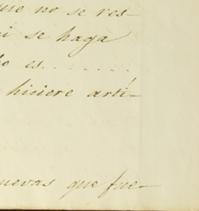 que no se res-
si se haga
lo es.......
hiciere arti-
nuevas que fue-